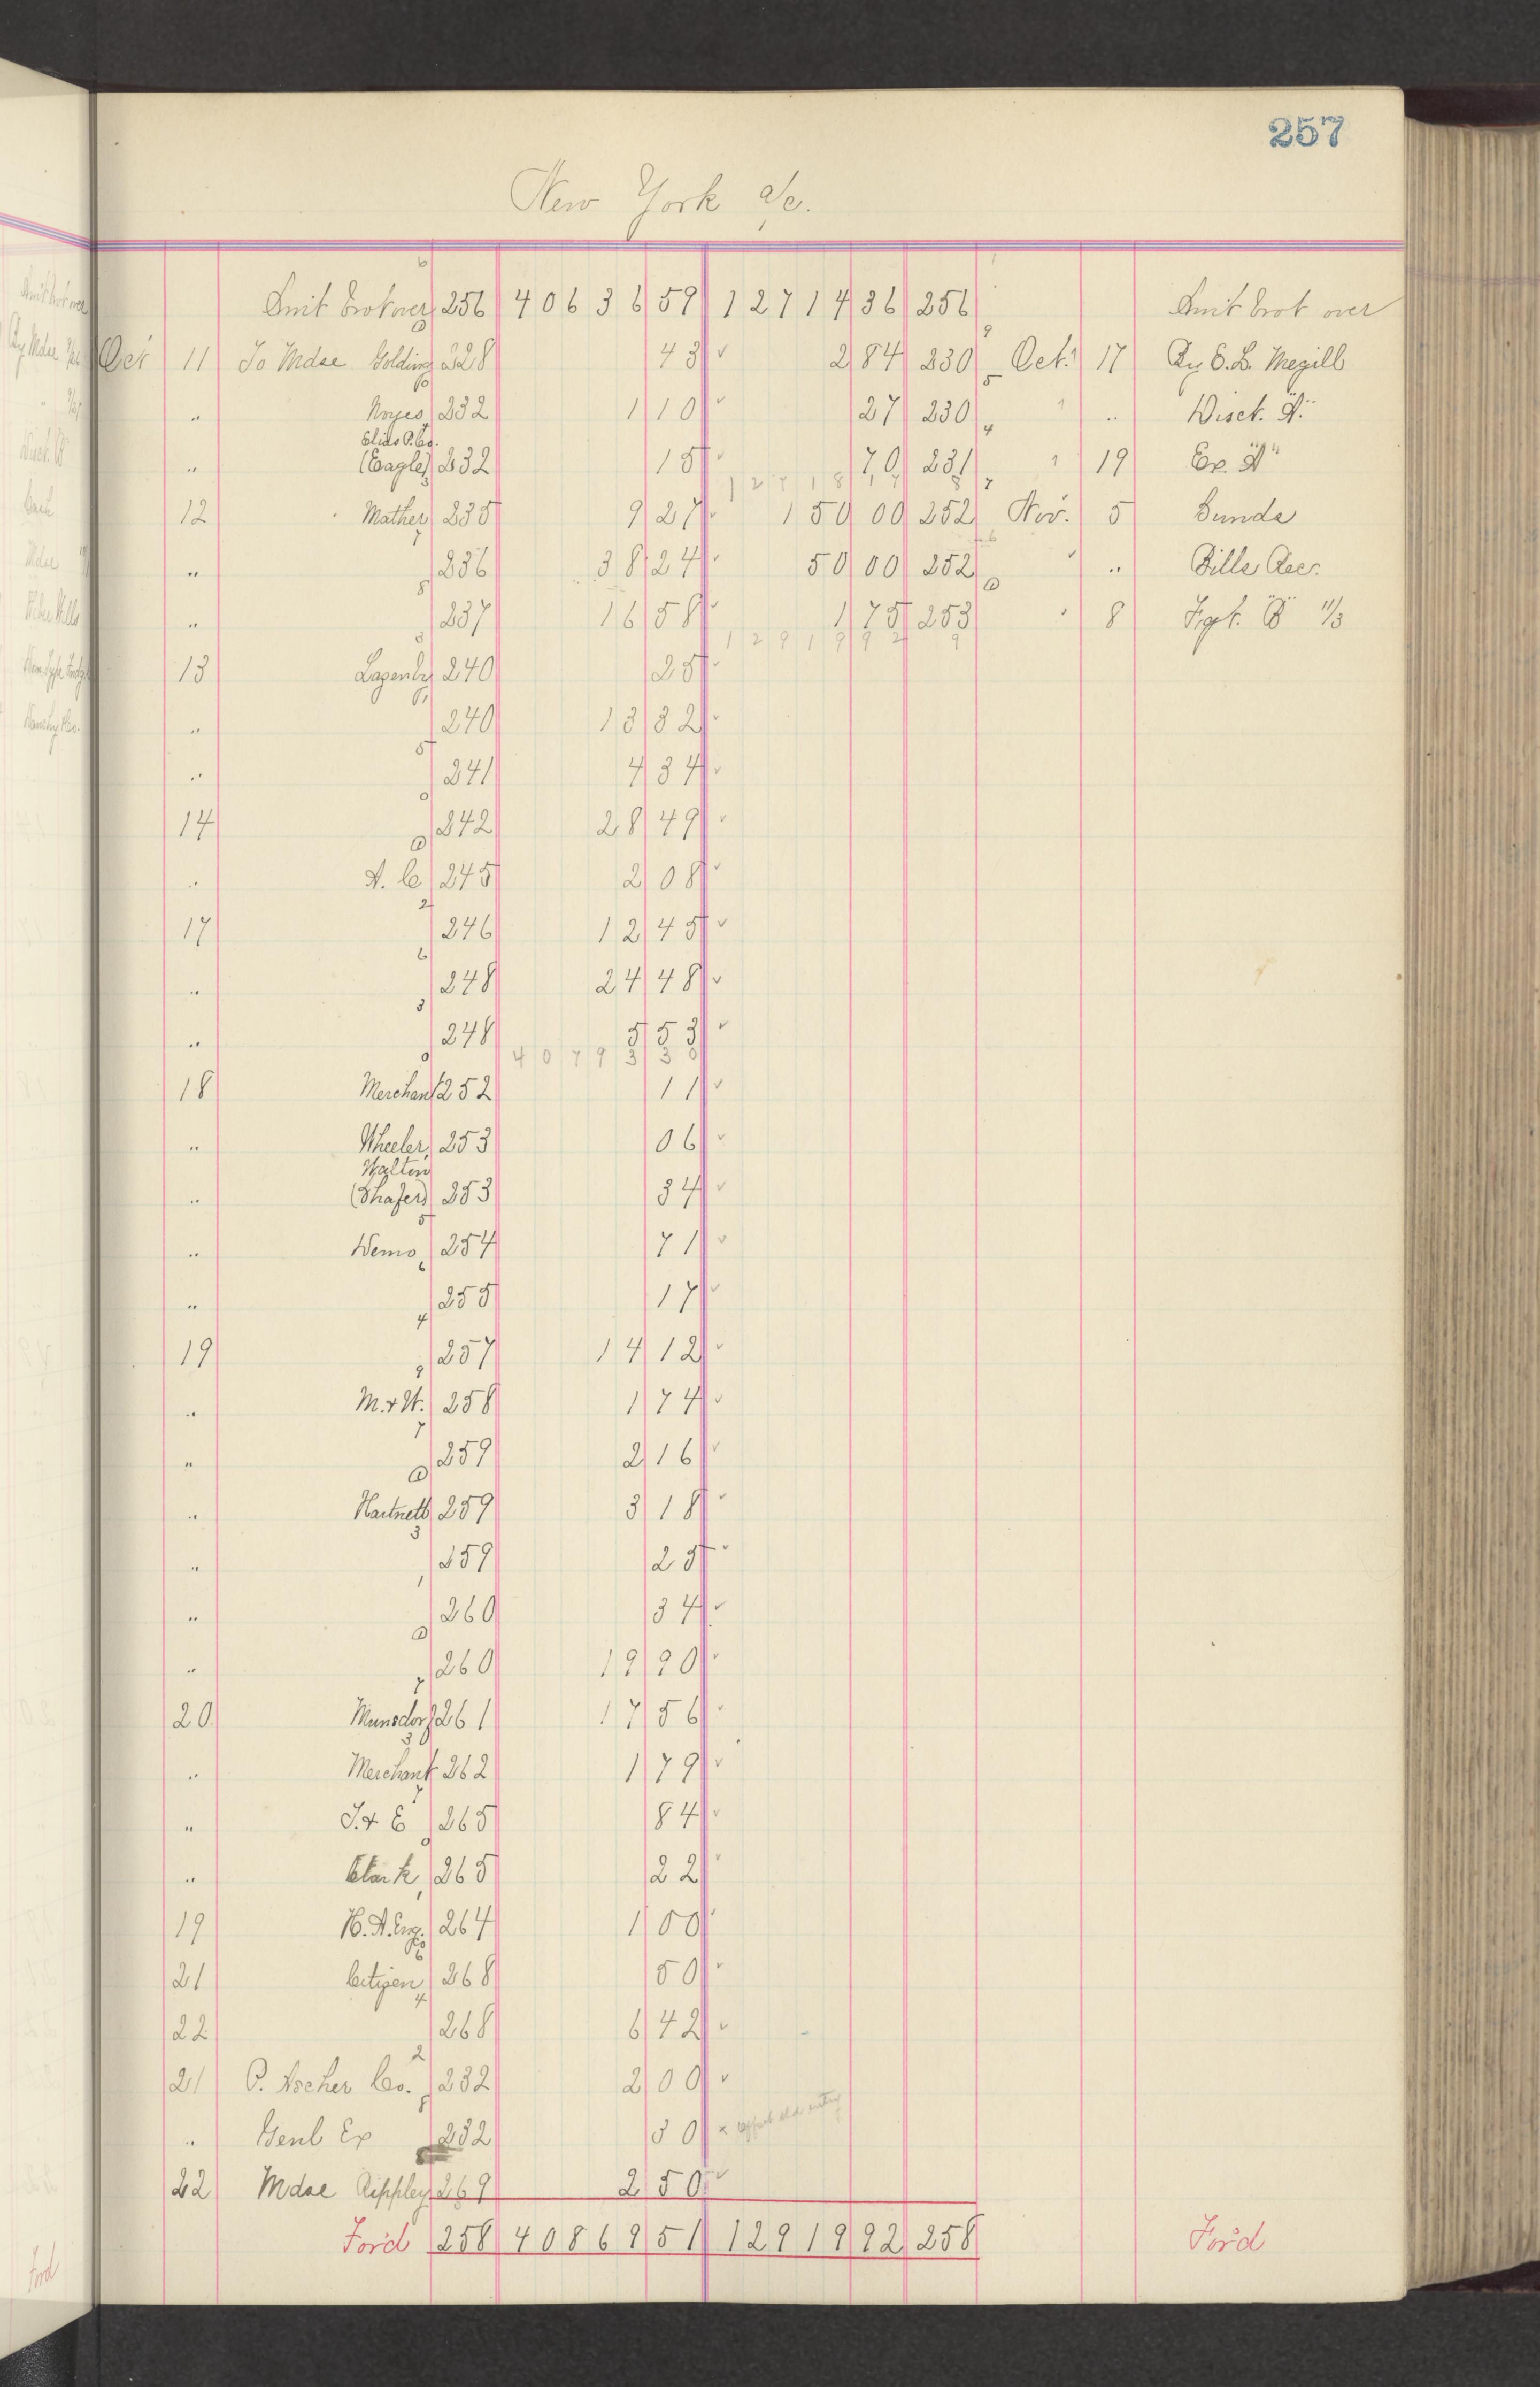 257
New York a/c.
Amt brot over 256 40636 59 12714 36 256 Amt brot over
Oct 11 To Mdse Golding 228 43 2 84 230 Oct. 17 By E. B. Megill
" Noyes 232 1 10 27 230 " " Disct. A"
Elias P. Co.
" (Eagle) 232 15 70 231 " 19 Ex. A"
12718 17
12 Mather 235 9 27 150 00 252 Nov. 5 Sunds
" 236 38 24 50 00 252 " " Bills Rec.
" 237 16 58 1 75 253 " 8 Frgt. B 11/3
12919 92
13 Lazenby 240 25
" 240 13 32
" 241 4 34
14 242 28 49
" A. C. 245 2 08
17 246 12 45
" 248 24 48
" 248 5 53
40793 30
18 Merchant 252 11
" Wheeler 253 06
Walton
" (Shafer) 253 34
" Demo 254 71
" 255 17
19 257 14 12
" M. & W. 258 1 74
" 259 2 16
" Hartnett 259 3 18
" 259 25
" 260 34
" 260 19 90
20 Munsdorf 261 17 56
" Merchant 262 1 79
" I. & E 265 84
" Clark 265 22
19 H. A. Eng. Co 264 1 00
21 Citizen 268 50
22 268 6 42
21 P. Ascher Co. 232 2 00
" Genl Ex 232 50 x offset old entry
22 Mdse Rippley 269 2 50
For'd 258 40869 51 12919 92 258 For'd